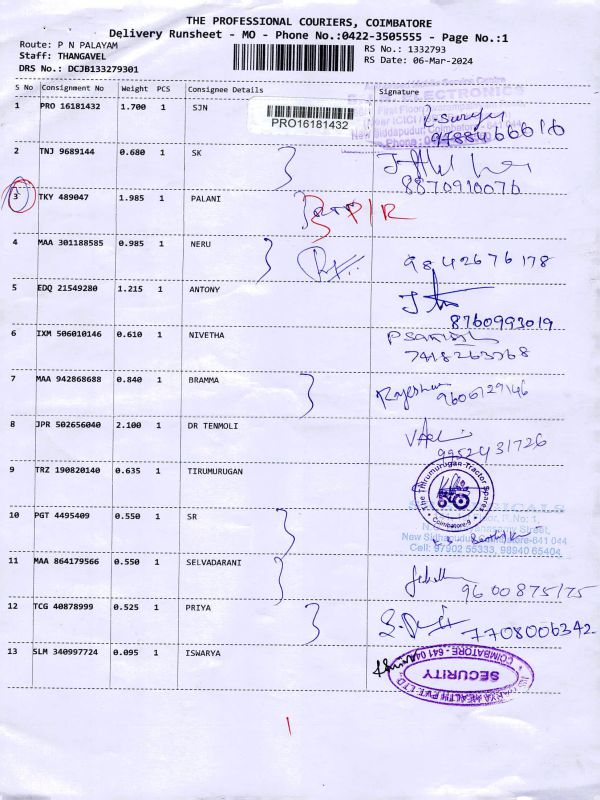 THE PROFESSIONAL COURIERS, COIMBATORE
Delivery Runsheet - MO - Phone No.:0422-3505555 - Page No.:1
Route: P N PALAYAM
RS No.: 1332793
Staff: THANGAVEL
RS Date: 06-Mar-2024
DRS No.: DCJB133279301
S No Consignment No Weight PCS Consignee Details Signature
1 PRO 16181432 1.700 1 SJN
PRO16181432
9788466616
2 TNJ 9689144 0.680 1 SK
8870910076
3 TKY 489047 1.985 1 PALANI
4 MAA 301188585 0.985 1 NERU
9842676178
5 EDQ 21549280 1.215 1 ANTONY
8760993019
6 IXM 506010146 0.610 1 NIVETHA
7418263768
7 MAA 942868688 0.840 1 BRAMMA
9606729146
8 JPR 502656040 2.100 1 DR TENMOLI
9952431726
9 TRZ 190820140 0.635 1 TIRUMURUGAN
The Thirumurugan Tractor Spares
Coimbatore-9
10 PGT 4495409 0.550 1 SR
New Siddapudur, Coimbatore-641 044
Cell: 97902 55333, 98940 65404
11 MAA 864179566 0.550 1 SELVADARANI
9600875175
12 TCG 40878999 0.525 1 PRIYA
7708006342
13 SLM 340997724 0.095 1 ISWARYA
SECURITY
COIMBATORE - 641 044